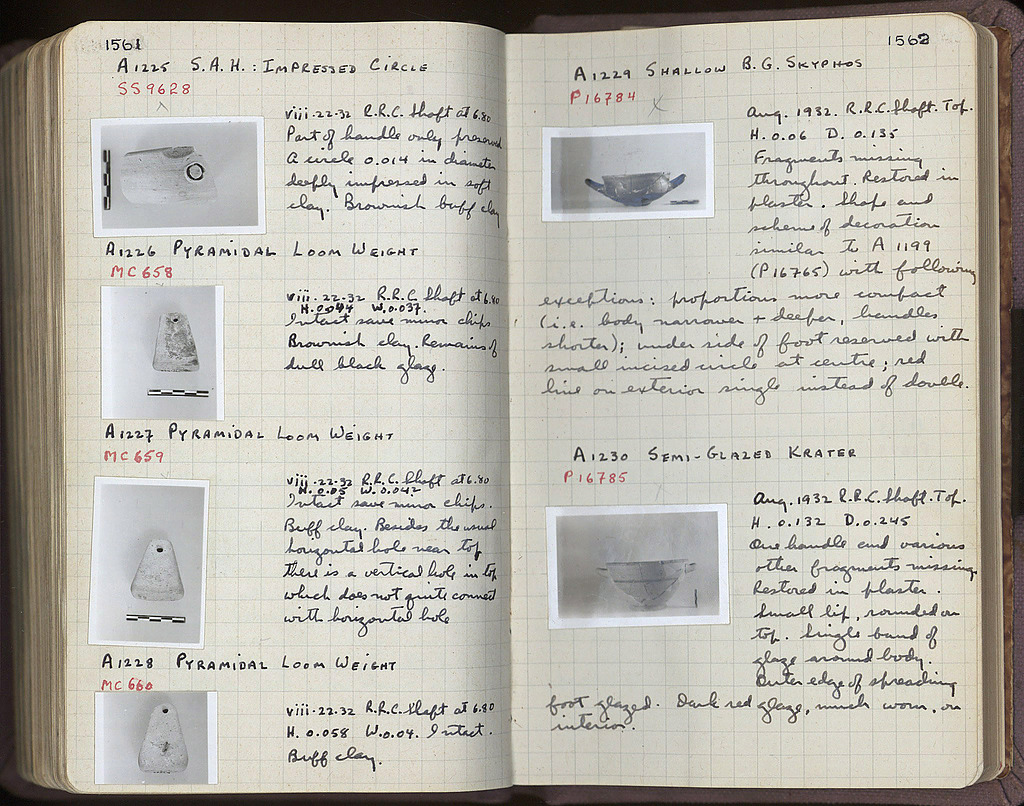 1561
A1225 S.A.H.: IMPRESSED CIRCLE
SS9628
viii.22.32 R.R.C. Shaft at 6.80
Part of handle only preserved
A circle 0.014 in diameter
deeply impressed in soft
clay. Brownish buff clay
A1226 PYRAMIDAL LOOM WEIGHT
MC658
viii.22.32 R.R.C. Shaft at 6.80
H. 0.044 W. 0.037.
Intact save minor chips
Brownish clay. Remains of
dull black glaze.
A1227 PYRAMIDAL LOOM WEIGHT
MC659
viii.22.32 R.R.C. Shaft at 6.80
H. 0.05 W. 0.042
Intact save minor chips.
Buff clay. Besides the usual
horizontal hole near top
there is a vertical hole in top
which does not quite connect
with horizontal hole
A1228 PYRAMIDAL LOOM WEIGHT
MC660
viii.22.32 R.R.C. Shaft at 6.80
H. 0.058 W. 0.04. Intact.
Buff clay.
1562
A1229 SHALLOW B.G. SKYPHOS
P16784
Aug. 1932. R.R.C. Shaft. Top.
H. 0.06 D. 0.135
Fragments missing
throughout. Restored in
plaster. Shape and
scheme of decoration
similar to A 1199
(P16765) with following
exceptions: proportions more compact
(i.e. body narrower + deeper, handles
shorter); under side of foot reserved with
small incised circle at centre; red
line on exterior single instead of double.
A1230 SEMI-GLAZED KRATER
P16785
Aug. 1932 R.R.C. Shaft. Top.
H. 0.132 D. 0.245
One handle and various
other fragments missing.
Restored in plaster.
Small lip, rounded on
top. Single band of
glaze around body.
Outer edge of spreading
foot glazed. Dark red glaze, much worn, on
interior.